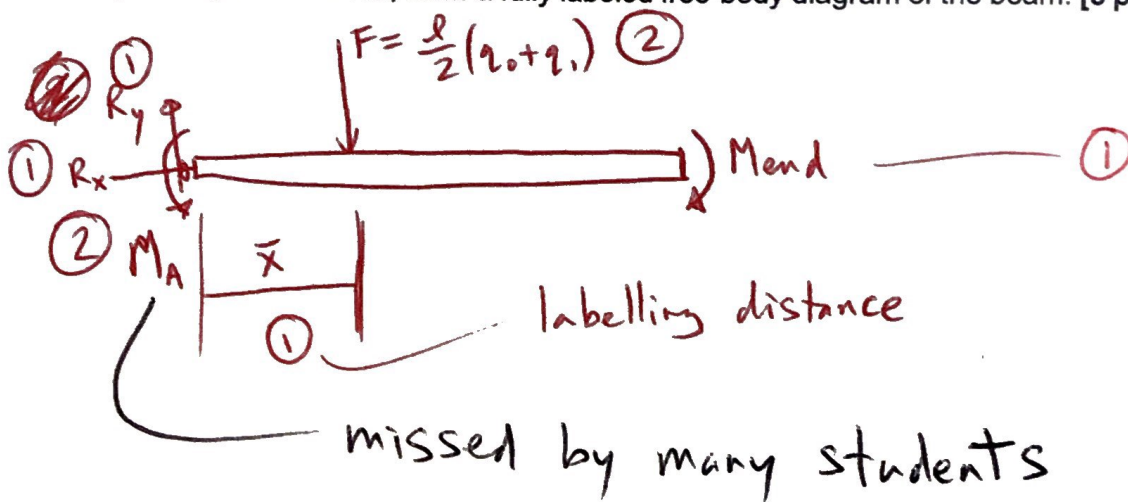 a fully labeled free-body diagram of the beam.
F = ℓ/2 (q₀+q₁) ②
①
Ry
① Rx
Mend ①
② MA
x̄
①
labelling distance
missed by many students